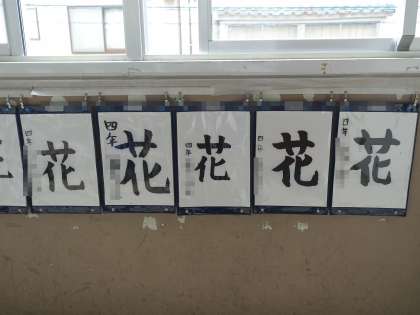 花
四年
花
四年
花
四年
花
四年
花
四年
花